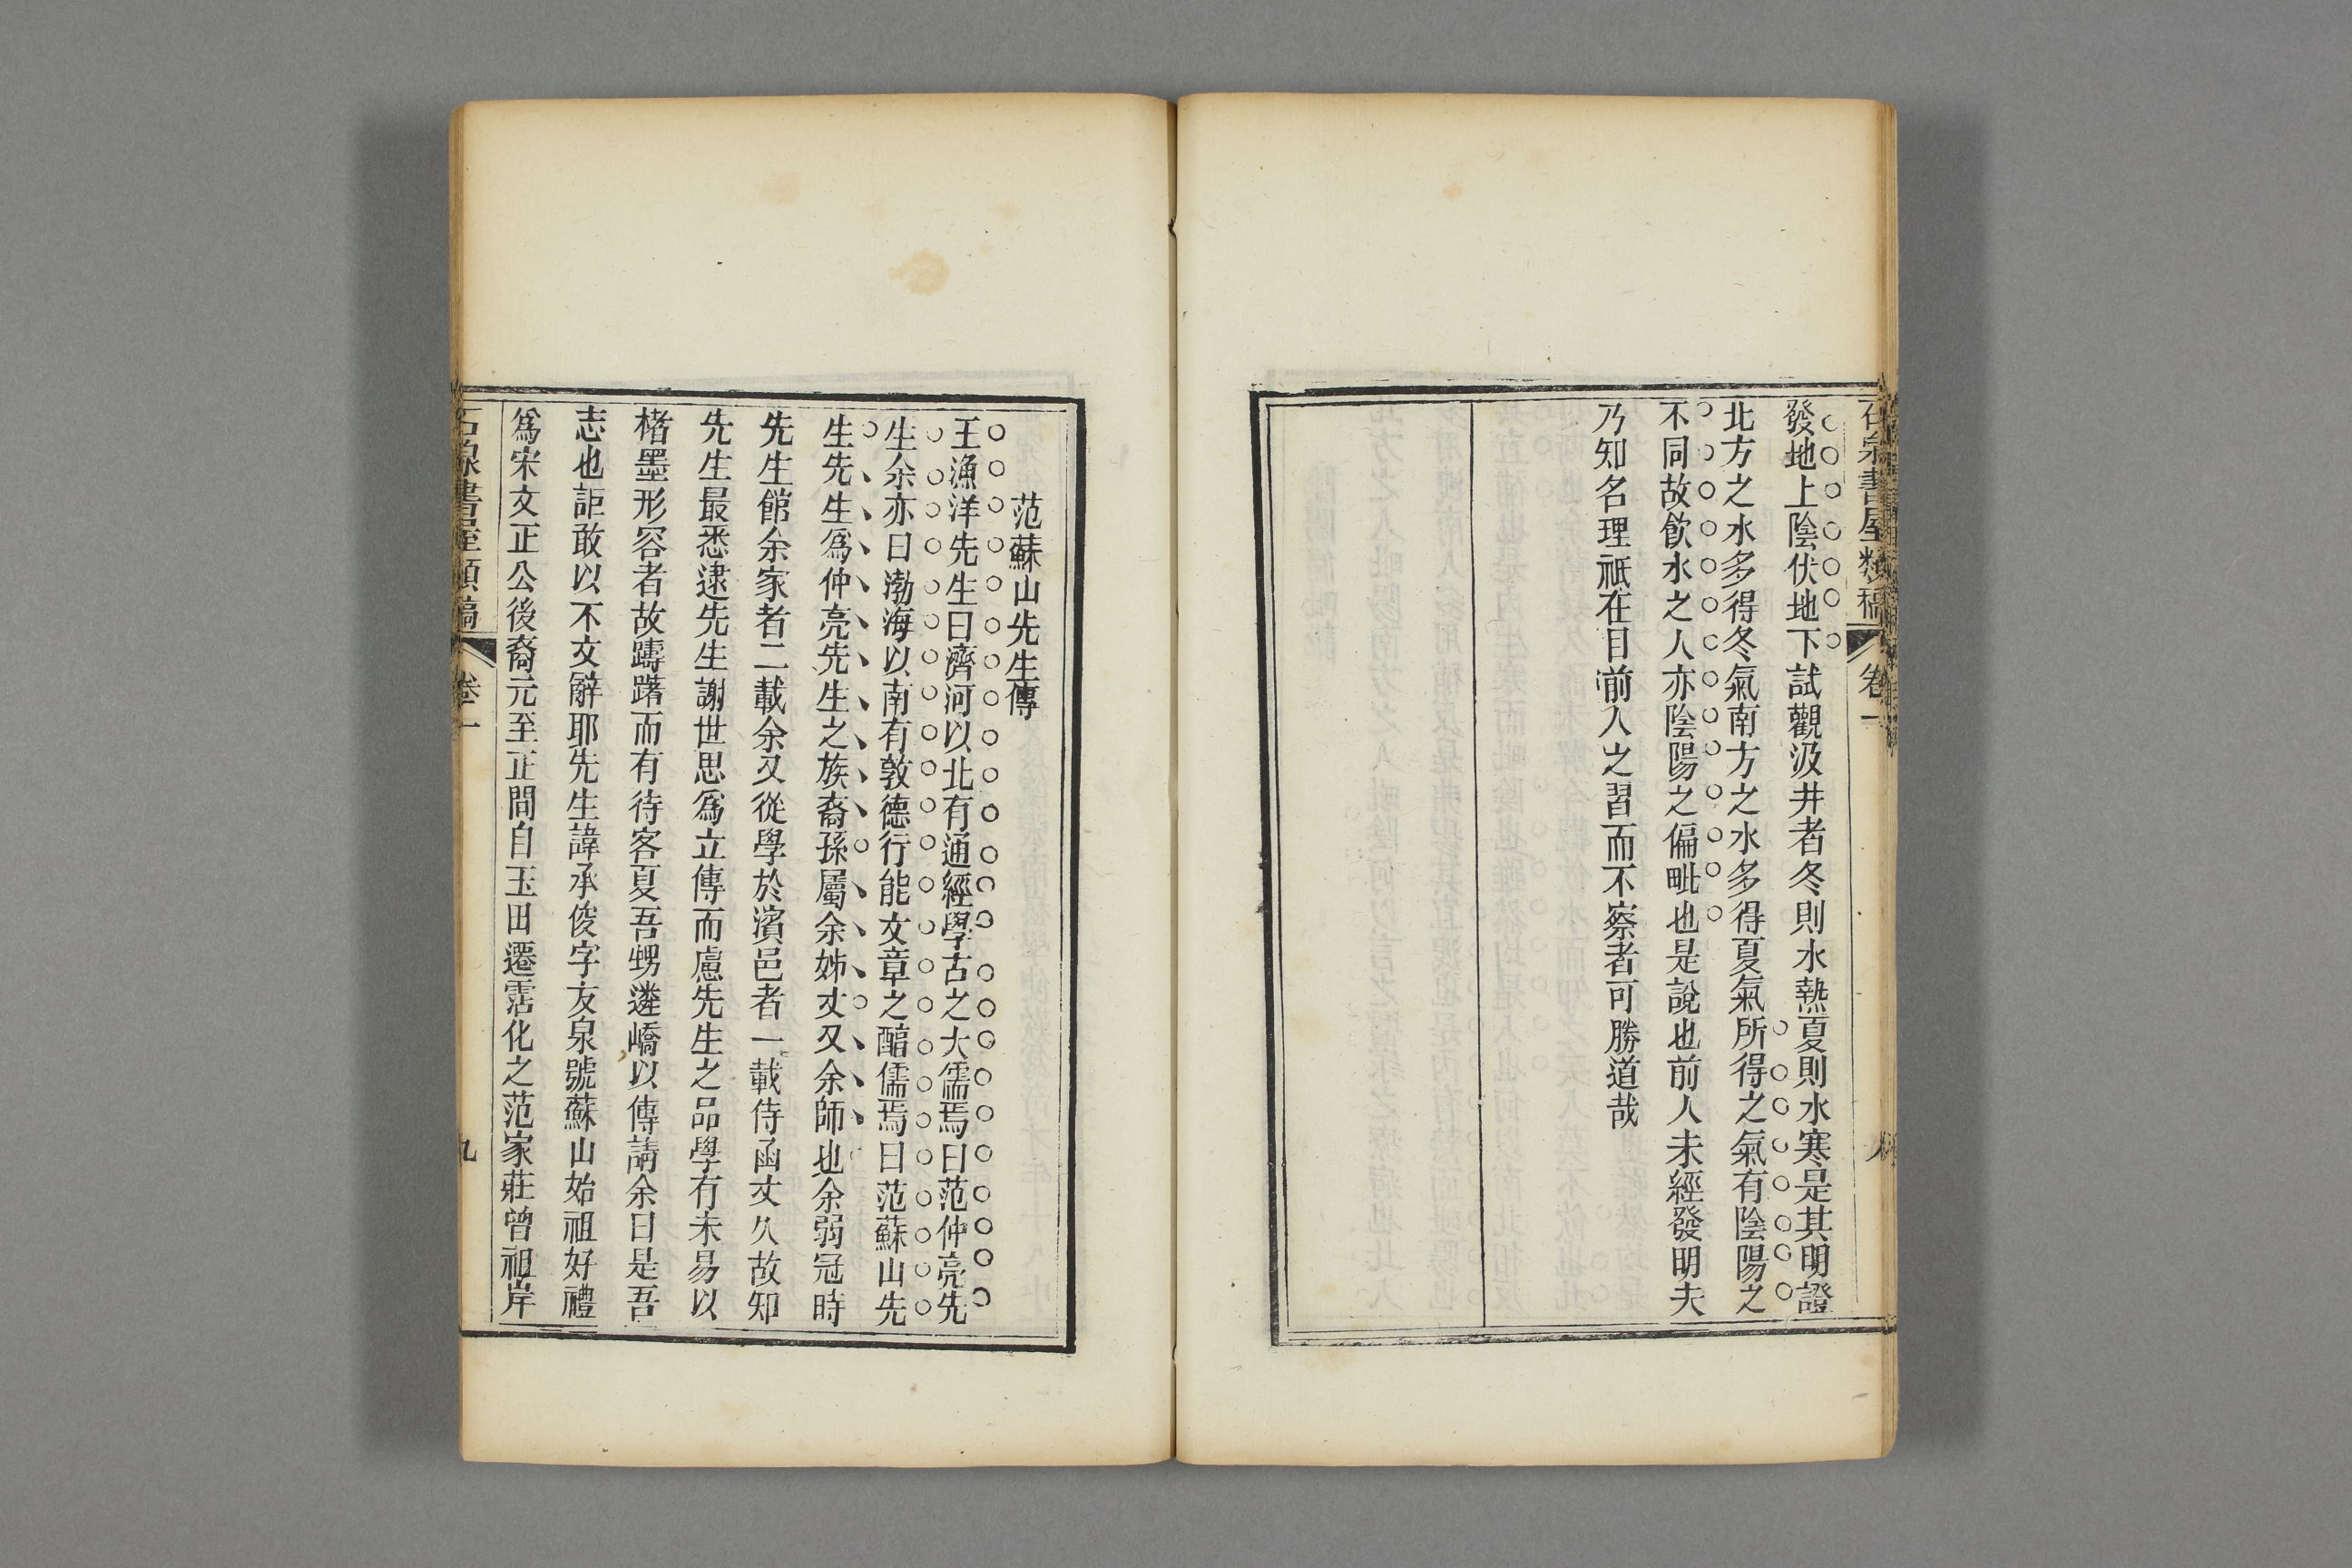 石泉書屋類稿 卷一
發地上陰伏地下試觀汲井者冬則水熱夏則水寒是其明證
北方之水多得冬氣南方之水多得夏氣所得之氣有陰陽之
不同故飲水之人亦陰陽之偏毗也是說也前人未經發明夫
乃知名理祇在目前人之習而不察者可勝道哉
范蘇山先生傳
王漁洋先生曰濟河以北有通經學古之大儒焉曰范仲亮先
生余亦曰渤海以南有敦德行能文章之醕儒焉曰范蘇山先
生先生爲仲亮先生之族裔孫屬余姊丈又余師也余弱冠時
先生館余家者二載余又從學於濱邑者一載侍函丈久故知
先生最悉逮先生謝世思爲立傳而慮先生之品學有未易以
楮墨形容者故躊躇而有待客夏吾甥遴嶠以傳請余曰是吾
志也詎敢以不文辭耶先生諱承俊字友泉號蘇山始祖好禮
爲宋文正公後裔元至正間自玉田遷霑化之范家莊曾祖岸
石泉書屋類稿 卷一 九